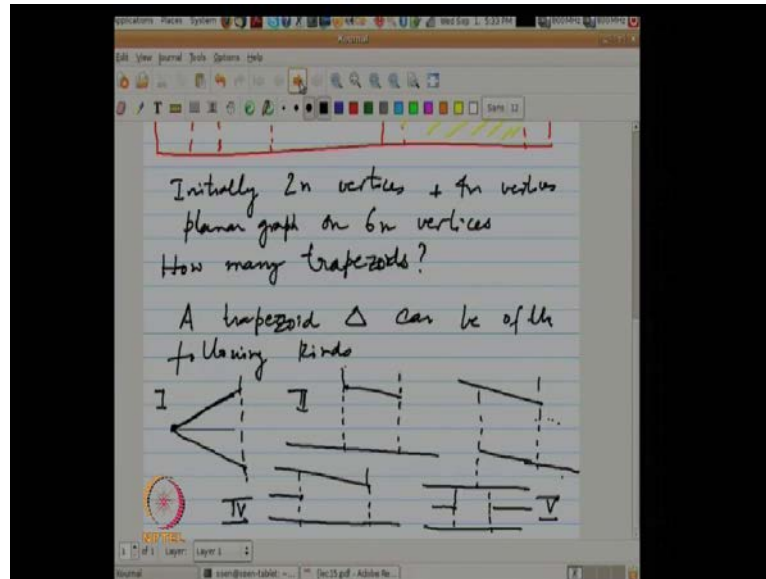 Applications Places System Wed Sep 1, 5:33 PM 800 MHz 800 MHz
Xournal
Edit View Journal Tools Options Help
T Sans 12
Initially 2n vertices + 4n vertices
planar graph on 6n vertices
How many trapezoids?
A trapezoid Δ can be of the
following kinds
I II
IV V
NPTEL
1 of 1 Layer: Layer 1
Xournal ssen@ssen-tablet: ~... [lec15.pdf - Adobe Re...